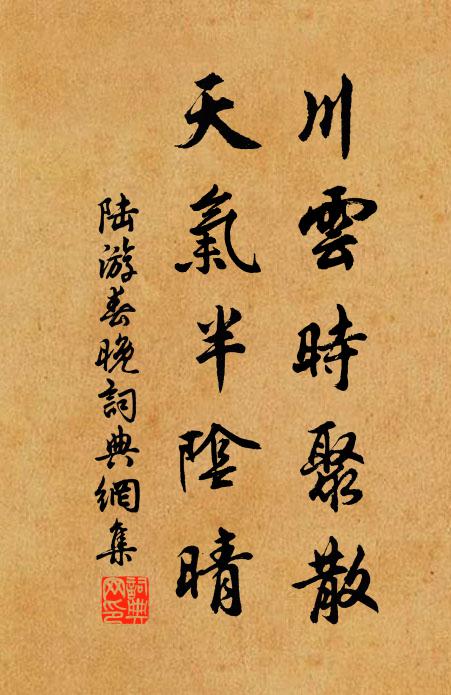 川雲時聚散
天氣半陰晴
陸游春晚詞典網集
詞典網印